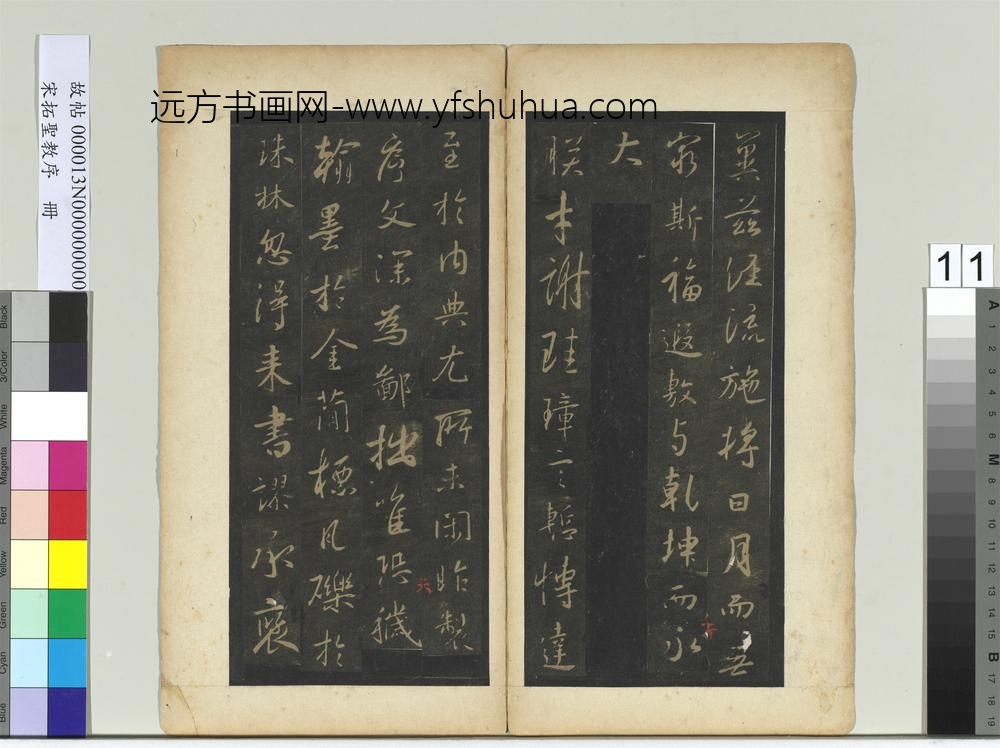 远方书画网-www.yfshuhua.com
故帖 000013N000000000
宋拓聖教序 冊
11
冀茲經流施將日月而無
窮斯福遐敷與乾坤而永
大
朕才謝珪璋言慙博達
至於內典尤所未閑昨製
序文深為鄙拙唯恐穢
翰墨於金簡標瓦礫於
珠林忽得来書謬承褒
Black
3/Color
White
Magenta
Red
Yellow
Green
Cyan
Blue
A 1 2 3 4 5 6 M 8 9 10 11 12 13 14 15 B 17 18 19